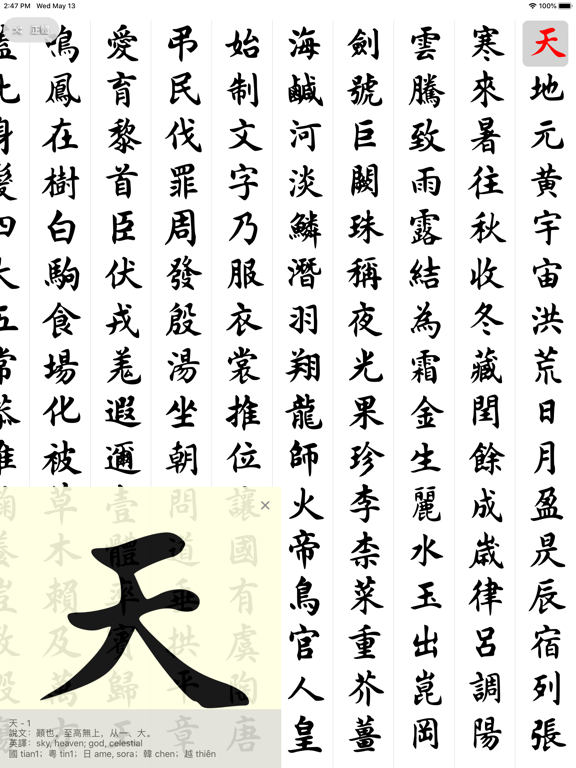 2:47 PM Wed May 13
100%
正楷
天地元黄宇宙洪荒日月盈昃辰宿列張
寒來暑往秋收冬藏閏餘成歳律呂調陽
雲騰致雨露結為霜金生麗水玉出崑岡
劍號巨闕珠稱夜光果珍李柰菜重芥薑
海鹹河淡鱗潛羽翔龍師火帝鳥官人皇
始制文字乃服衣裳推位讓國有虞陶唐
弔民伐罪周發殷湯坐朝問道垂拱平章
愛育黎首臣伏戎羌遐邇壹體率賓歸王
鳴鳳在樹白駒食場化被草木賴及萬方
天
天 - 1
說文：顚也。至高無上，从一、大。
英譯：sky, heaven; god, celestial
國 tian1；粵 tin1；日 ame, sora；韓 chen；越 thiên